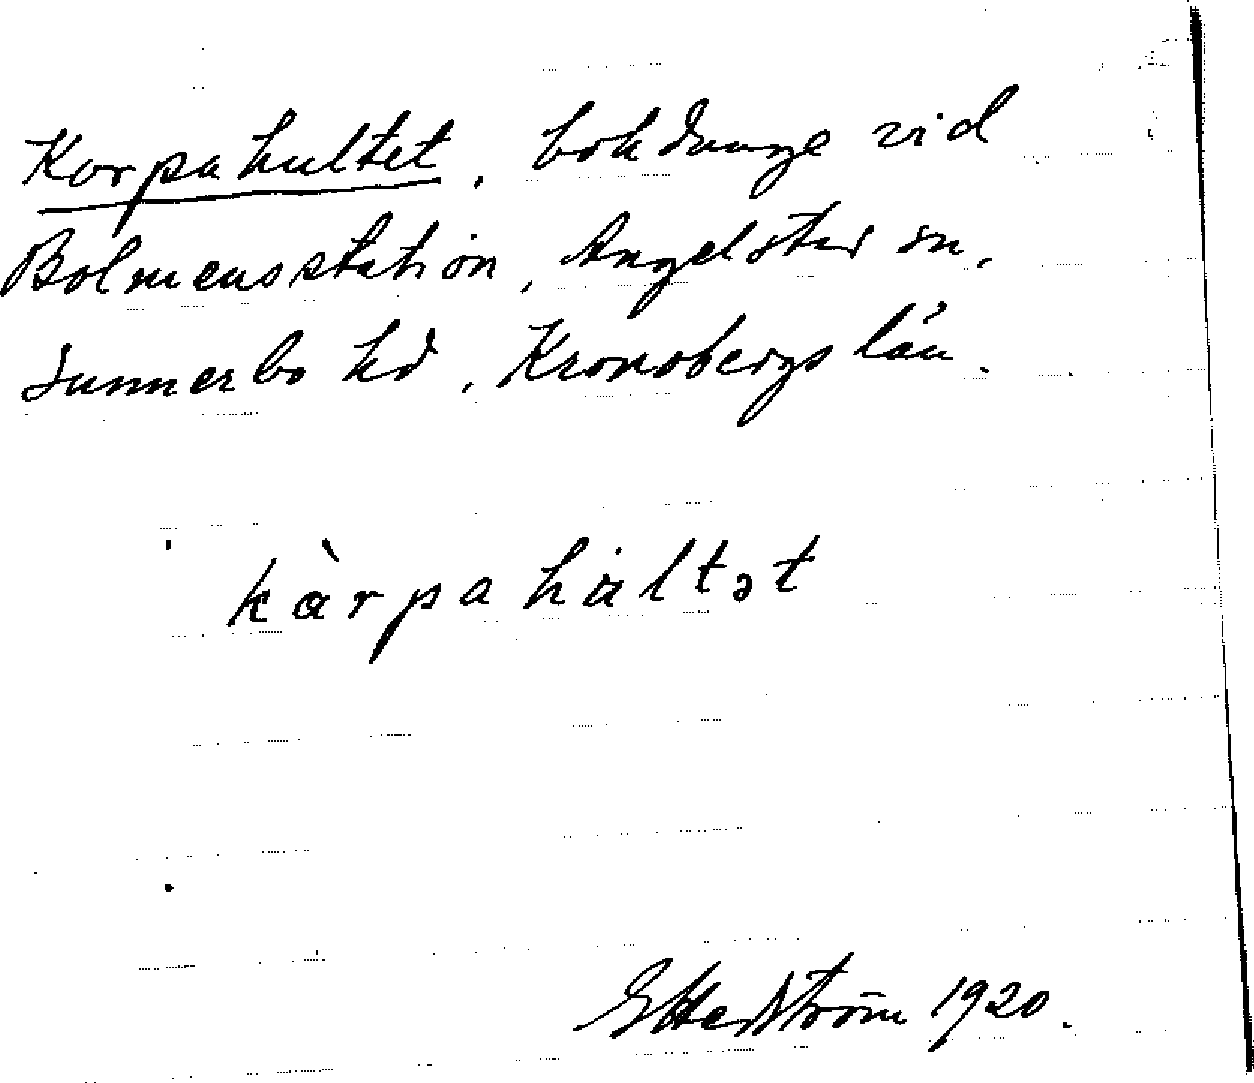 Korpahultet, bokdunge vid
Bolmensstation, Angelstad sn,
Sunnerbo hd, Kronobergs län.
kàrpaháltət
1920.